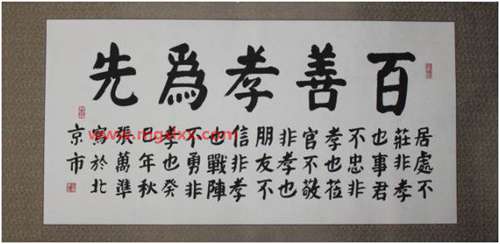 百善孝爲先
居處不
莊非孝
也事君
不忠非
孝也莅
官不敬
非孝也
朋友不
信非孝
也戰陣
不勇非
孝也癸
巳年秋
張萬準
寫於北
京市